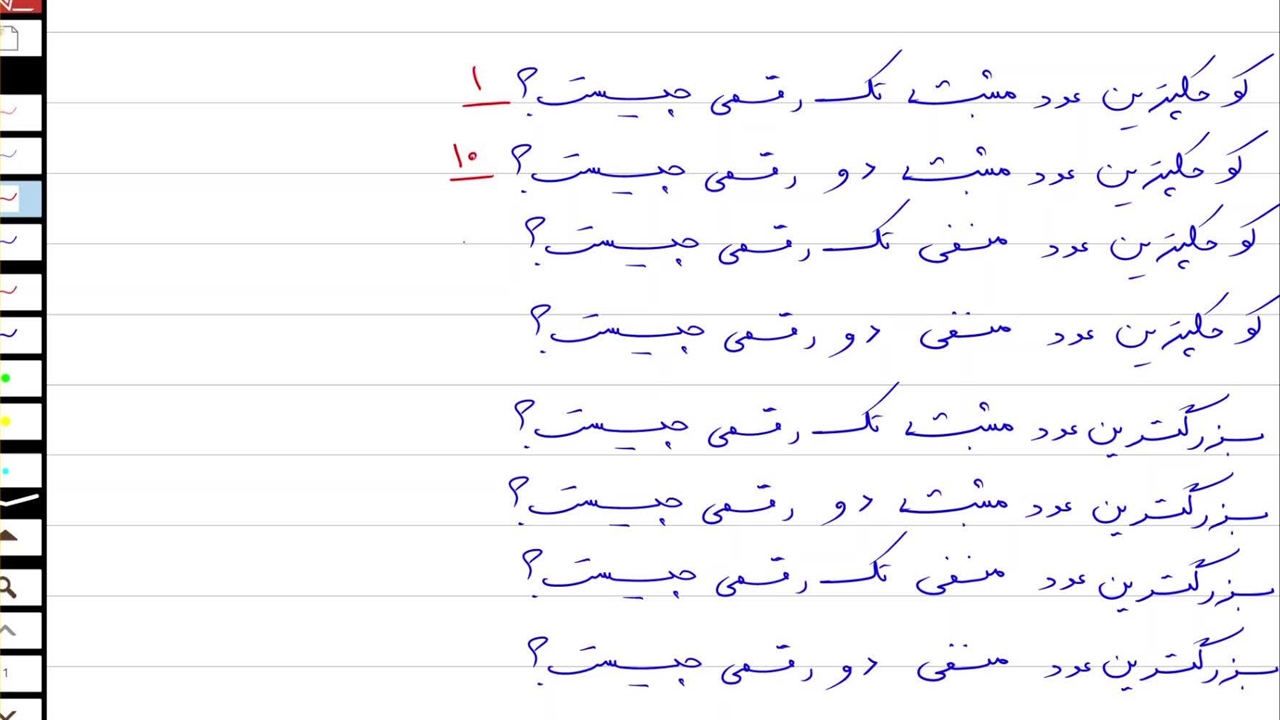 کوچکترین عدد مثبت تک رقمی چیست؟ ۱
کوچکترین عدد مثبت دو رقمی چیست؟ ۱۰
کوچکترین عدد منفی تک رقمی چیست؟
کوچکترین عدد منفی دو رقمی چیست؟
بزرگترین عدد مثبت تک رقمی چیست؟
بزرگترین عدد مثبت دو رقمی چیست؟
بزرگترین عدد منفی تک رقمی چیست؟
بزرگترین عدد منفی دو رقمی چیست؟
1